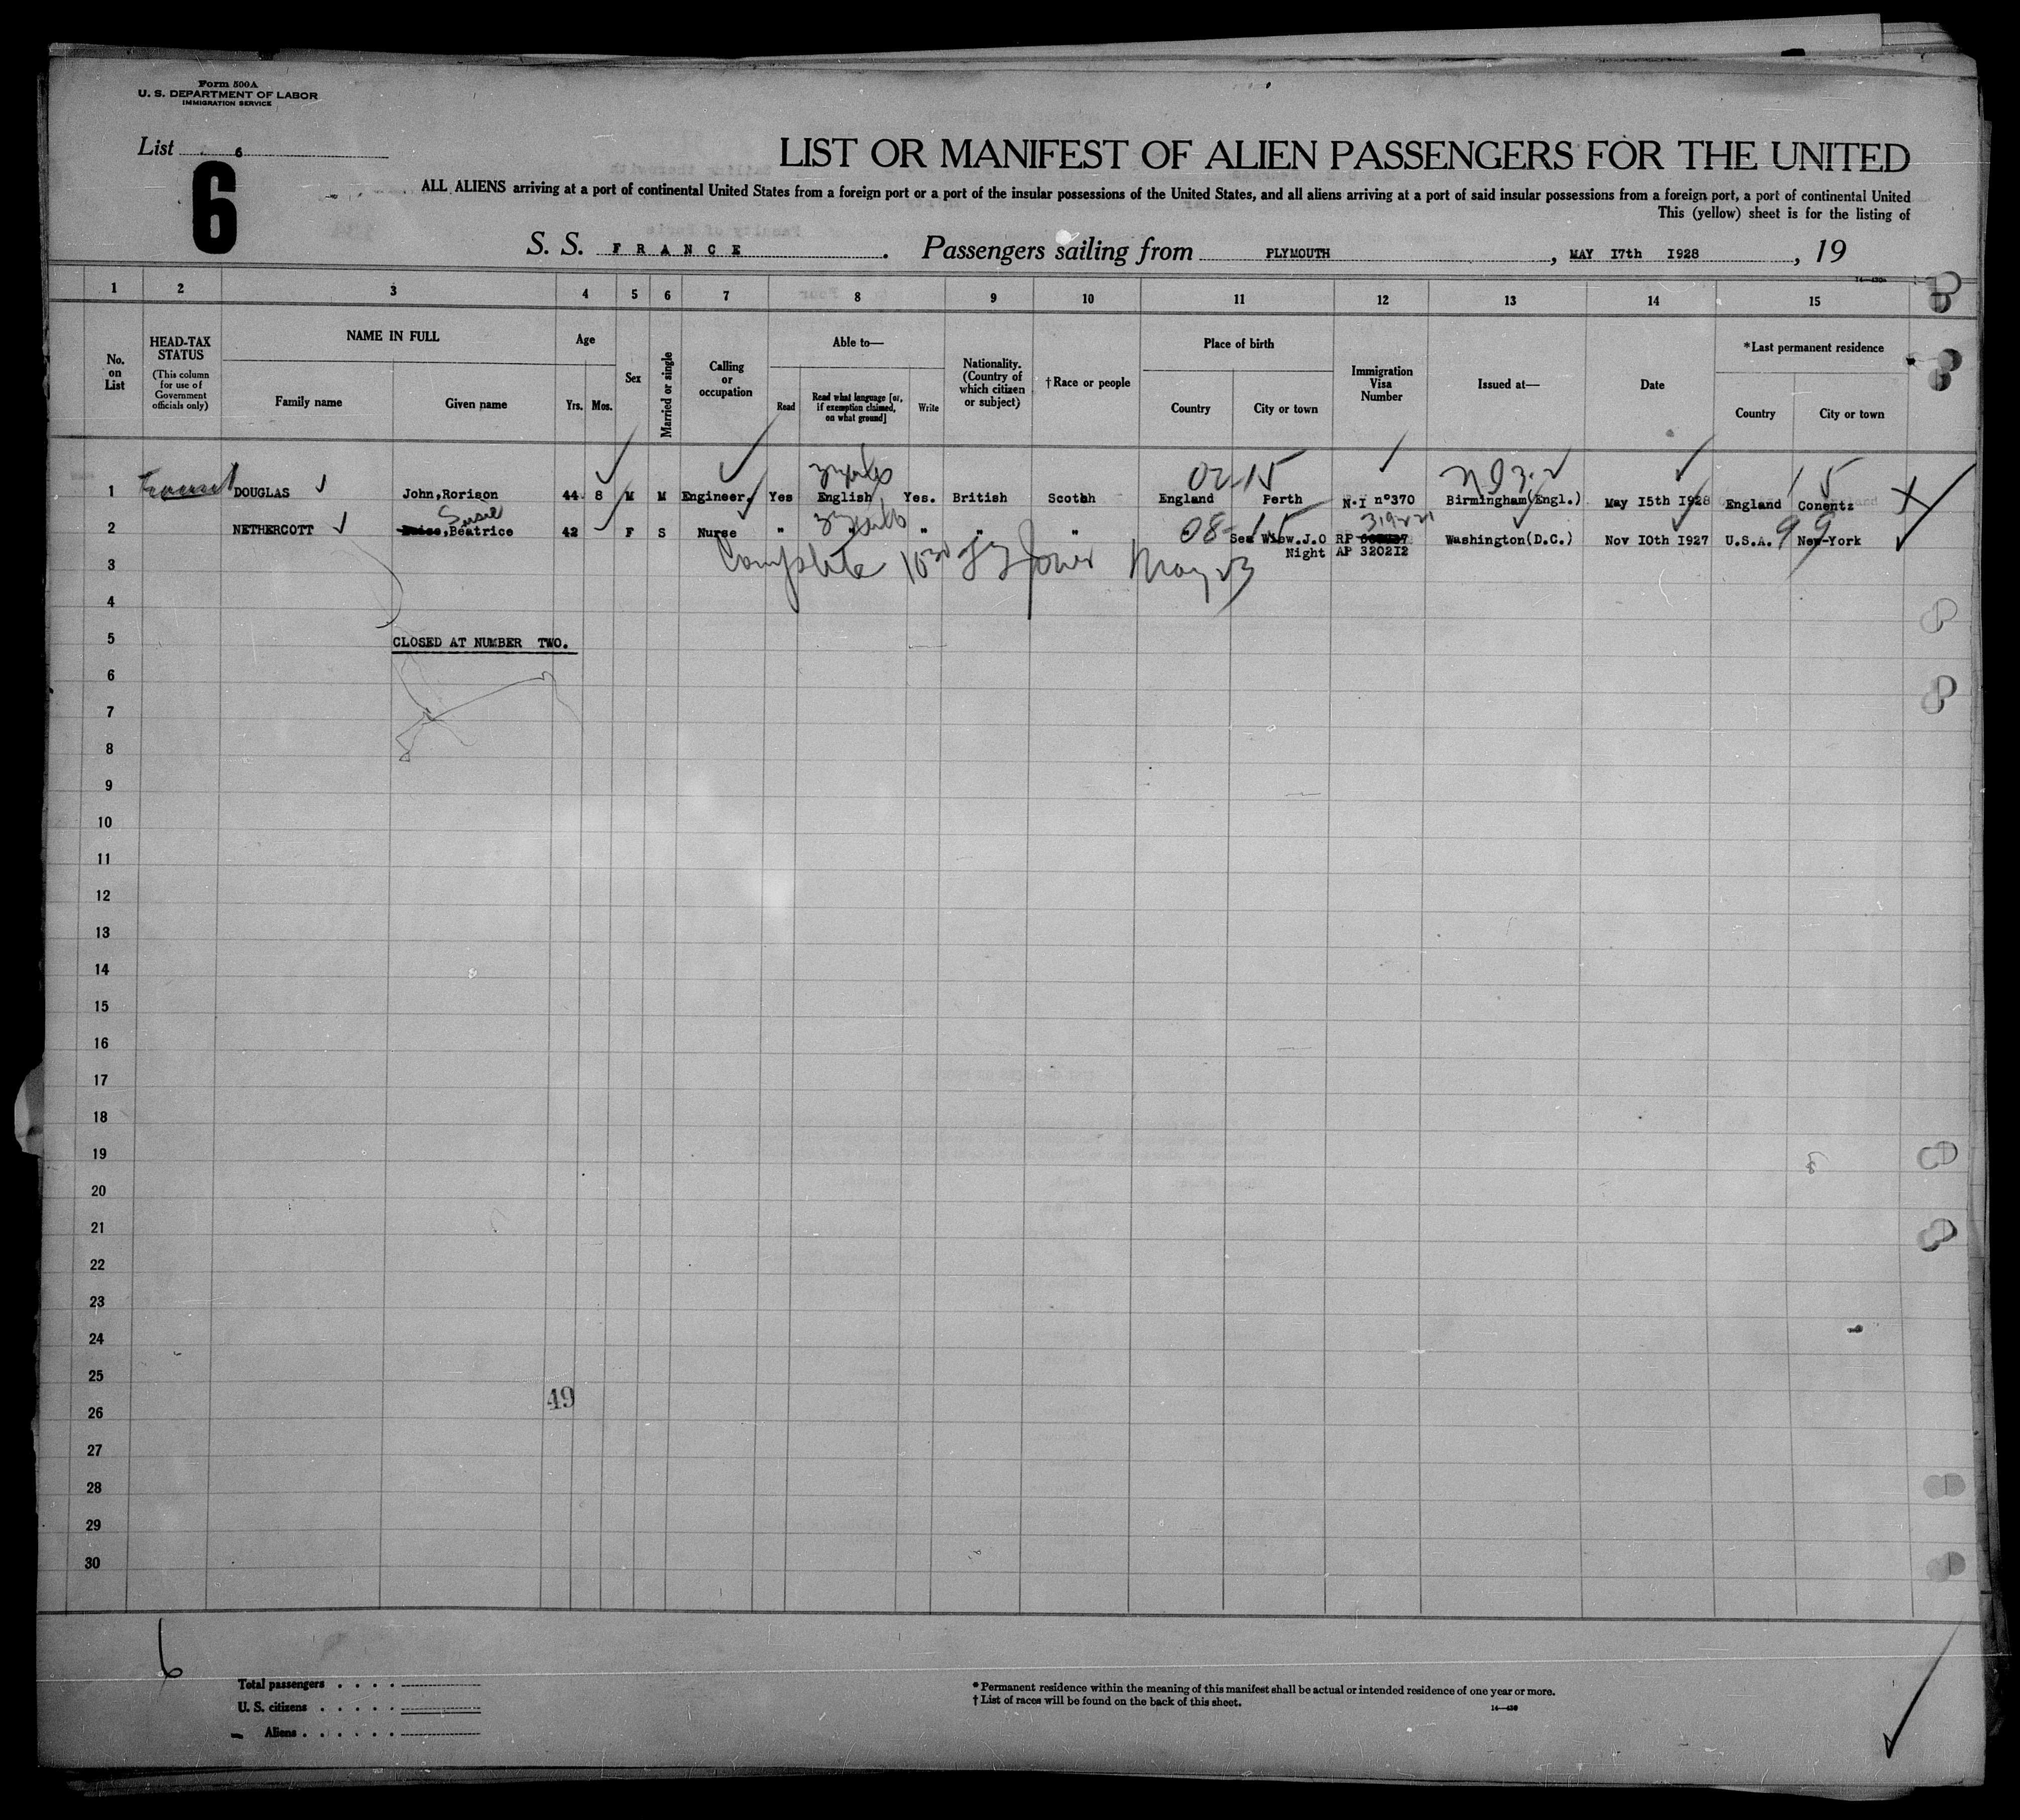 Form 500A
U. S. DEPARTMENT OF LABOR
IMMIGRATION SERVICE
List 6
6
LIST OR MANIFEST OF ALIEN PASSENGERS FOR THE UNITED
ALL ALIENS arriving at a port of continental United States from a foreign port or a port of the insular possessions of the United States, and all aliens arriving at a port of said insular possessions from a foreign port, a port of continental United
This (yellow) sheet is for the listing of
S. S. FRANCE. Passengers sailing from PLYMOUTH, MAY 17th 1928, 19
1 2 3 4 5 6 7 8 9 10 11 12 13 14 15
No. on List
HEAD-TAX STATUS (This column for use of Government officials only)
NAME IN FULL
Family name Given name
Age
Yrs. Mos.
Sex
Married or single
Calling or occupation
Able to—
Read
Read what language [or, if exemption claimed, on what ground]
Write
Nationality. (Country of which citizen or subject)
†Race or people
Place of birth
Country City or town
Immigration Visa Number
Issued at—
Date
*Last permanent residence
Country City or town
02 15 15
1 DOUGLAS John,Rorison 44 8 M M Engineer. Yes English Yes. British Scotch England Perth N.I n°370 Birmingham(Engl.) May 15th 1928 England Conentz
Susie
2 NETHERCOTT Beatrice 42 F S Nurse " " " " " 08-15 Sea View.J.O RP Washington(D.C.) Nov 10th 1927 U.S.A. New-York 99
Night AP 320212
Complete May 23
3
4
5 CLOSED AT NUMBER TWO.
6
7
8
9
10
11
12
13
14
15
16
17
18
19
20
21
22
23
24
25
49
26
27
28
29
30
6
Total passengers . . . .
U. S. citizens . . . . .
Aliens . . . . . .
* Permanent residence within the meaning of this manifest shall be actual or intended residence of one year or more.
† List of races will be found on the back of this sheet.
14—430